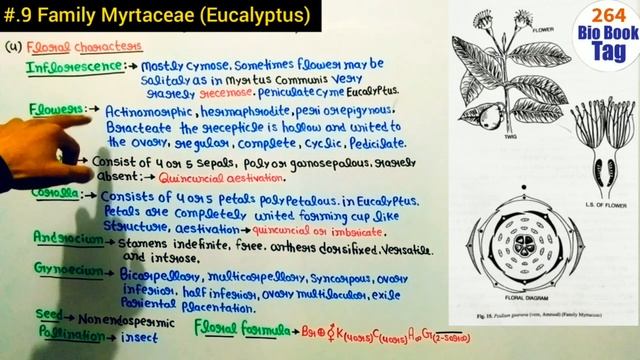 #.9 Family Myrtaceae (Eucalyptus)
264
Bio Book
Tag
Floral characters
Inflorescence:→ Mostly cymose, Sometimes flower may be
Solitaly as in Myrtus Communis very
rarely recemose. Peniculate cyme Eucalyptus.
Flowers:→ Actinomorphic, hermaphrodite, peri or epigynous.
Bracteate the recepticle is hallow and united to
the ovary, regular, complete, cyclic, Pedicilate.
:→ Consist of 4 or 5 sepals, Poly or gamosepalous, rarely
absent:→ Quincuncial aestivation.
Corolla:→ Consists of 4 or 5 Petals Poly Petalous. in Eucalyptus.
Petals are completely united forming cup like
Structure, aestivation→ quincuncial or imbricate.
Androcium→ Stamens indefinite, free. anthers dorsifixed. Versatile.
and introse.
Gynoecium→ Bicarpellary, multicarpellary, Syncarpous, ovary
inferior, half inferior, ovary multilocular, exile
Pariental placentation.
Seed→ Non endospermic
Pollination→ insect
Floral formula→ Br⊕⚥K(4 or 5)C(4 or 5)A∞G(2-5 or 10)
FLOWER
TWIG
L.S. OF FLOWER
FLORAL DIAGRAM
Fig. 15. Psidium guava (vern, Amrood) (Family Myrtaceae)